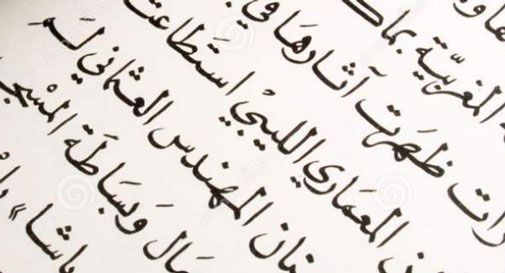 المغربية بما
ات ظَهَرَت آثارها في
المعماري الليبيّ استَطاعت
نان المهندس العثماني لم
ـَال وَبَسَاطَة المسْجد
باشا»